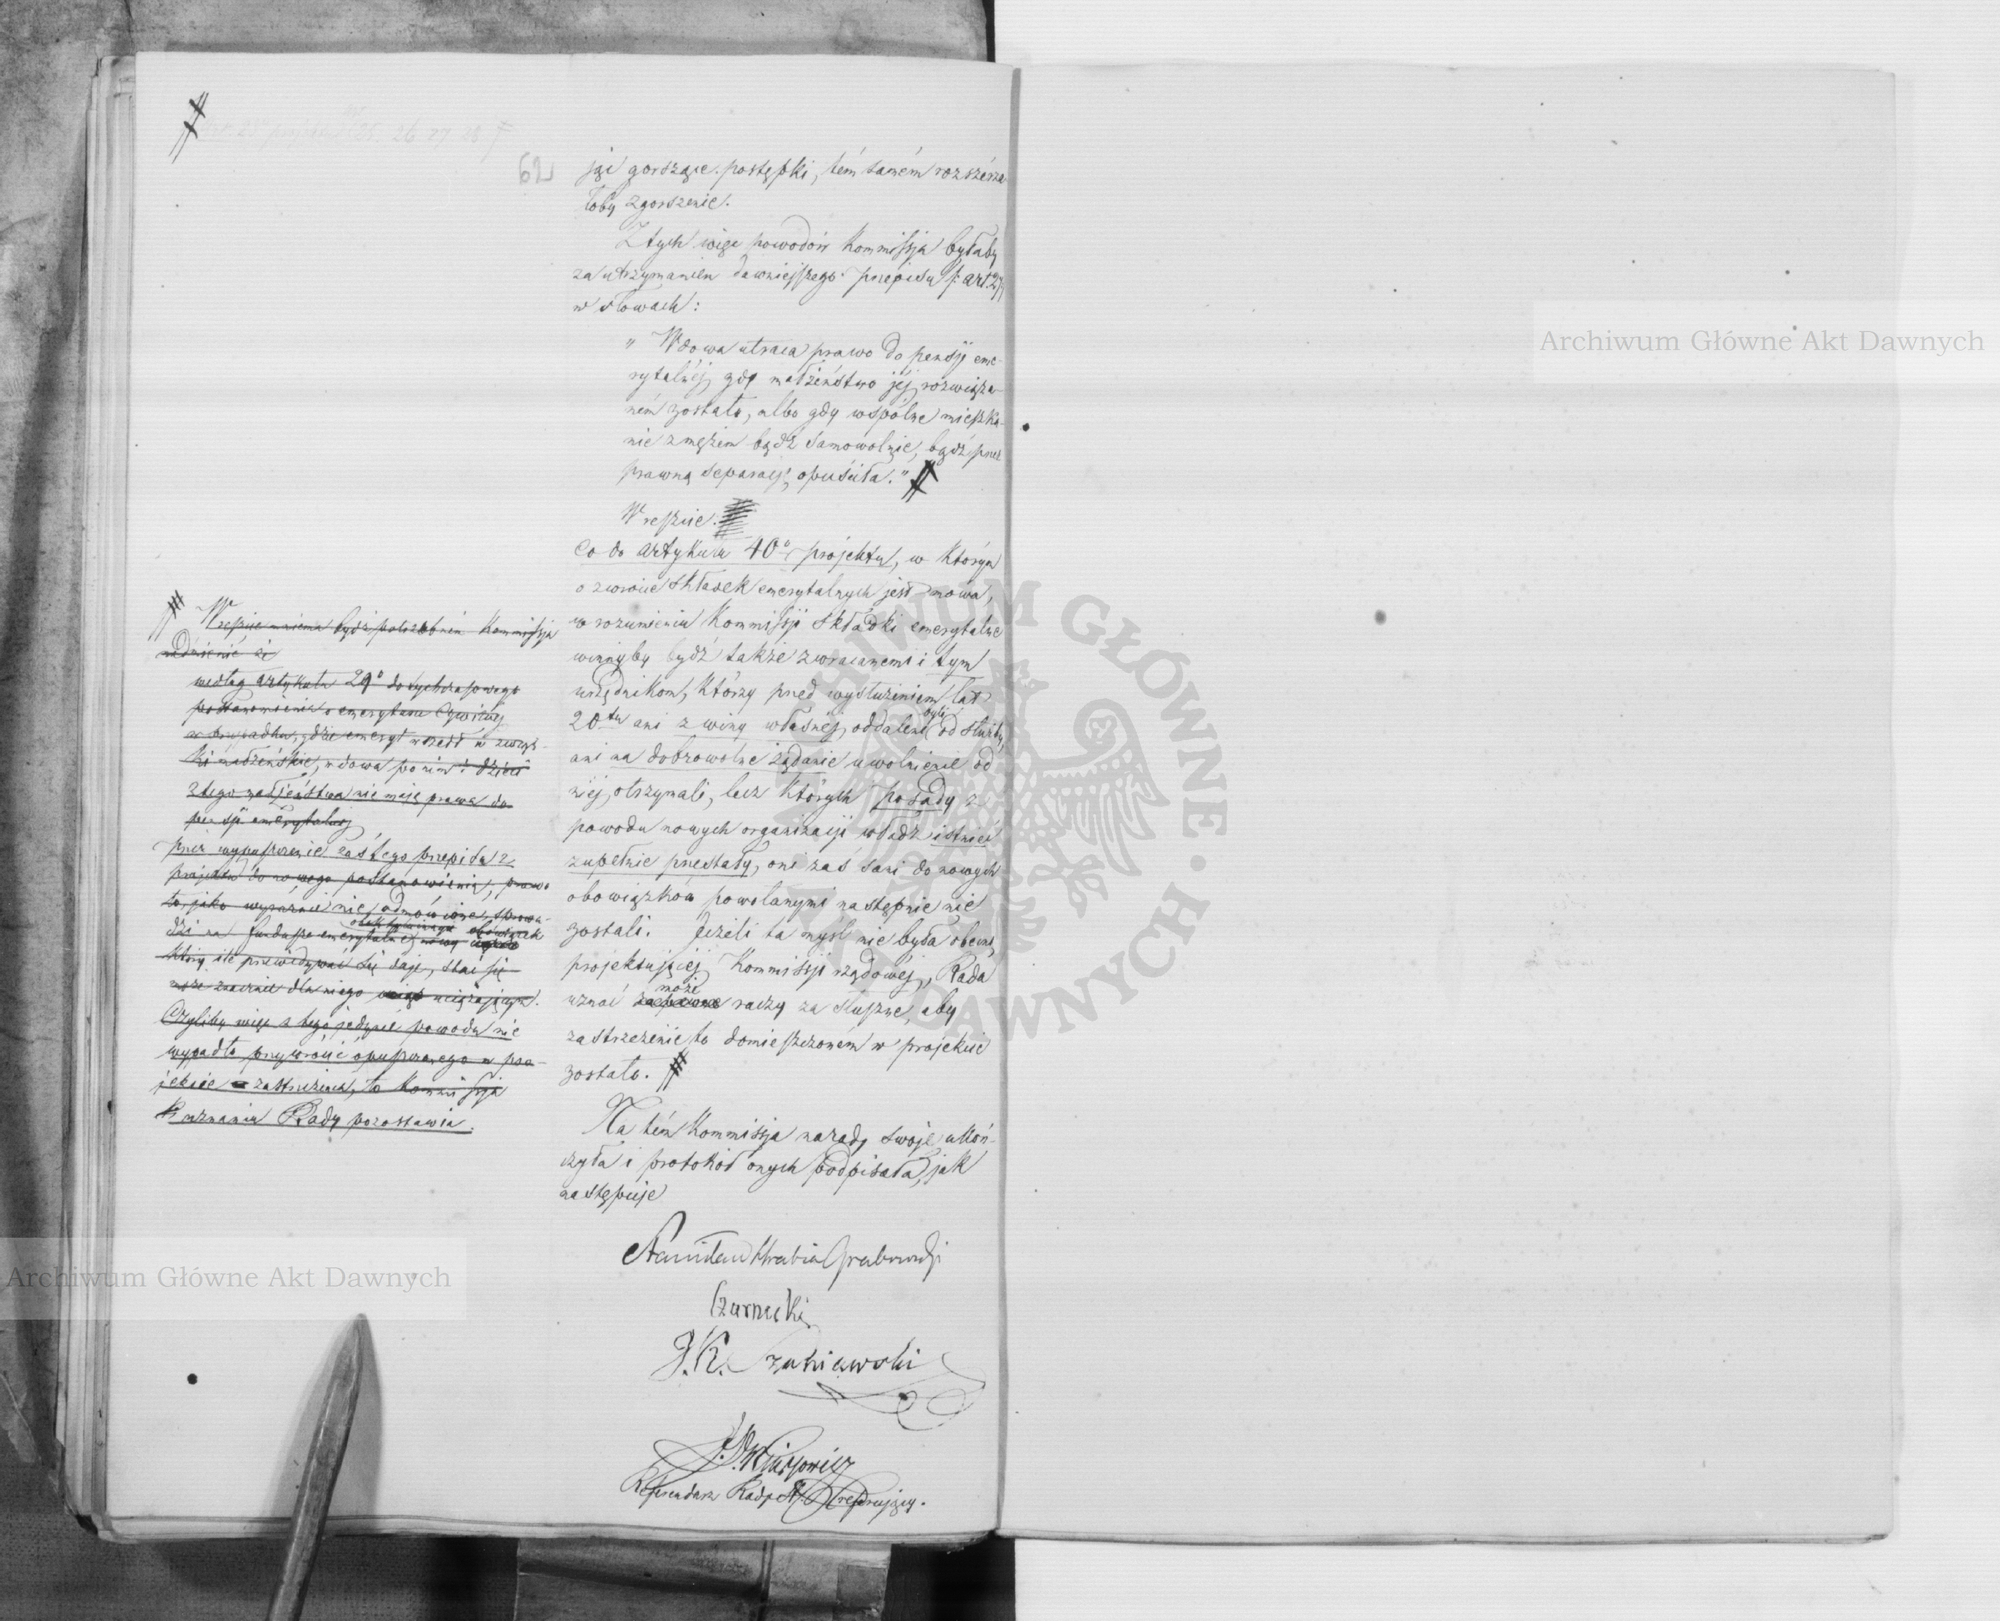 jąi gorszące postępki, tém samém rozszérza
łoby zgorszenie.
Z tych więc powodów Kommissja byłaby
za utrzymaniem dawniejszego przepisu
w słowach:
„Wdowa utraca prawo do pensji eme-
rytalnéj, gdy małżeństwo jéj rozwiąza-
ném zostało, albo gdy wspólne mieszka-
nie z mężem bądź samowolnie, bądź przez
prawną separacją opuściła."
Wreszcie
Co do artykułu 40° projektu, w którym
o zwrocie składek emerytalnych jest mowa,
w rozumieniu Kommissji składki emerytalne
winnyby bydź także zwracanemi i tym
urzędnikom, którzy przed wysłużeniem lat
20tu ani z winy własnéj oddaleni byli od służby,
ani na dobrowolne żądanie uwolnienie od
niéj otrzymali, lecz których posady z
powodu nowych organizacji władz istnieć
zupełnie przestały, oni zaś sami do nowych
obowiązków powołanymi następnie nie
zostali. Jeżeli ta myśl nie była obcą
projektującéj Kommissji rządowéj, Rada
uznać może raczy za słuszne, aby
zastrzeżenie to domieszczoném w projekcie
zostało.
Na tém Kommissja narady swoje ukoń-
czyła i protokół onych podpisała, jak
następuje
Stanisław Hrabia Grabowski
Czarnecki
J. K. Szaniawski
Referendarz Rady St.
62
Wreszcie mniema bydź potrzebnem Kommissja
nadmienić że
według artykułu 29° dotychczasowego
postanowienia o emeryturze Cywilnéj
w przypadku, gdzie emeryt wszedł w związ-
ki małżeńskie, wdowa po nim i dzieci
z tego małżeństwa nie mają prawa do
pensji emerytalnéj
przez wypuszczenie całego przepisu z
projektu do nowego postanowienia, prawo
to, jako wyraźnie nie odmówione, sprowa-
dzi na fundusze emerytalne nowy obowiązek
który, ile przewidywać się daje, stać się
może znacznie dla niego uciążającym.
Czyliby więc z tego jedynie powodu nie
wypadło przywrócić opuszczonego w pro-
jekcie zastrzeżenia, to Kommissja
uznaniu Rady pozostawia.
Archiwum Główne Akt Dawnych
Archiwum Główne Akt Dawnych
ARCHIWUM GŁÓWNE AKT DAWNYCH